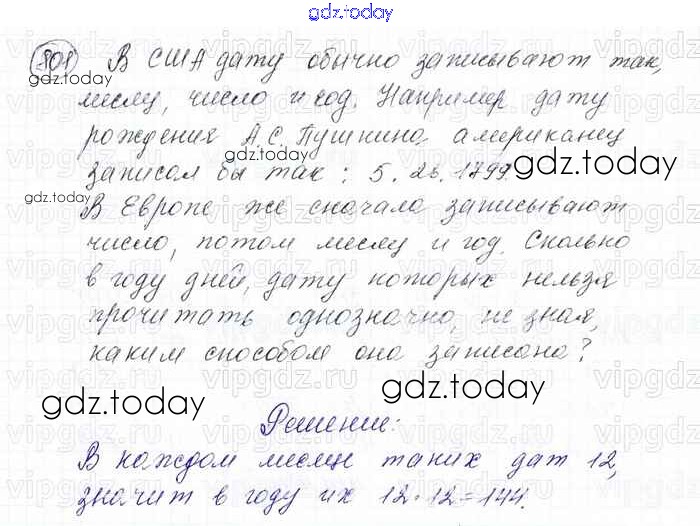 gdz.today
801 В США дату обычно записывают так,
gdz.today
месяц, число и год. Например дату
рождения А.С. Пушкина американец
gdz.today
gdz.today
записал бы так: 5.26.1799.
gdz.today
В Европе же сначала записывают
число, потом месяц и год. Сколько
в году дней, дату которых нельзя
прочитать однозначно, не зная,
каким способом она записана?
gdz.today
gdz.today
Решение:
В каждом месяце таких дат 12,
значит в году их 12·12=144.